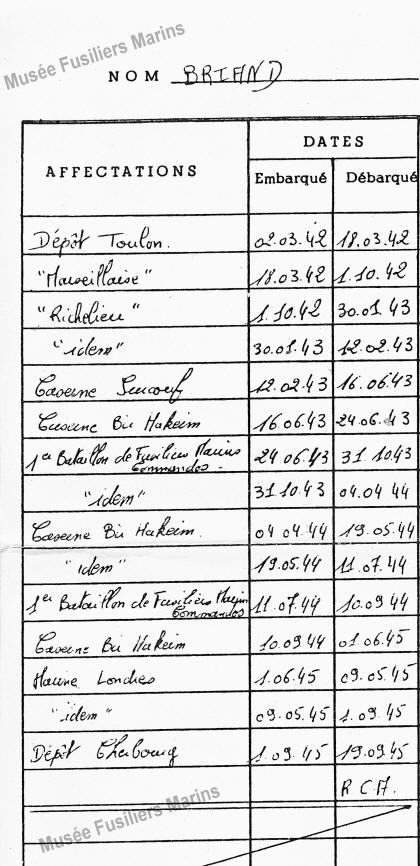 Musée Fusiliers Marins
NOM BRIAND
AFFECTATIONS DATES
Embarqué Débarqué
Dépôt Toulon. 02.03.42 18.03.42
"Marseillaise" 18.03.42 1.10.42
"Richelieu" 1.10.42 30.01.43
"idem" 30.01.43 12.02.43
Caserne Surcouf 12.02.43 16.06.43
Caserne Bir Hakeim 16.06.43 24.06.43
1er Bataillon de Fusiliers Marins 24.06.43 31 10.43
Commandos.
"idem" 31.10.43 04.04 44
Caserne Bir Hakeim. 04 04.44 19.05.44
"idem" 19.05.44 11.07.44
1er Bataillon de Fusiliers Marins 11.07.44 10.09 44
Commandos
Caserne Bir Hakeim 10.09 44 01.06.45
Marine Londres 1.06.45 09.05.45
"idem" 09.05.45 1.09.45
Dépôt Cherbourg 1.09.45 19.09.45
R C A.
Musée Fusiliers Marins